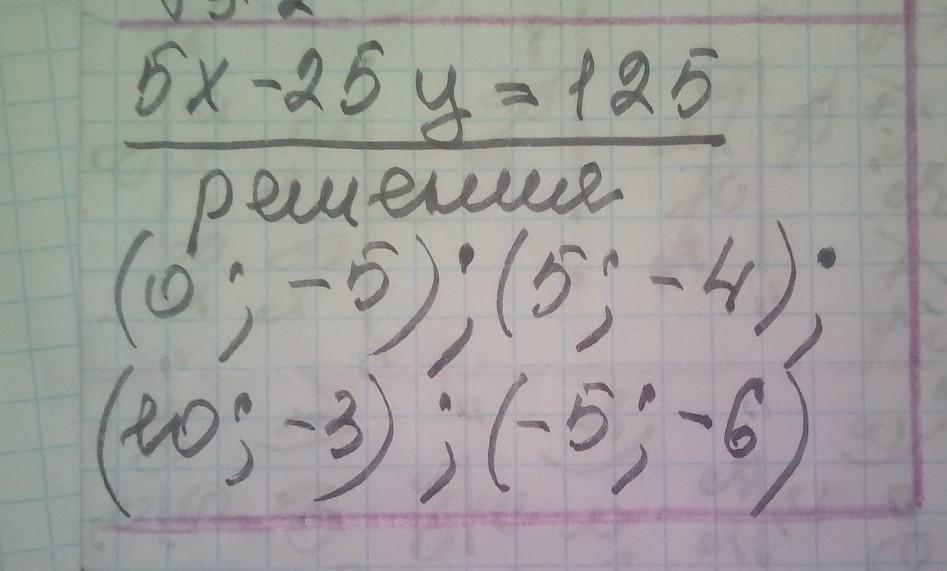 5x - 25y = 125
решения
(0; -5); (5; -4);
(10; -3); (-5; -6)